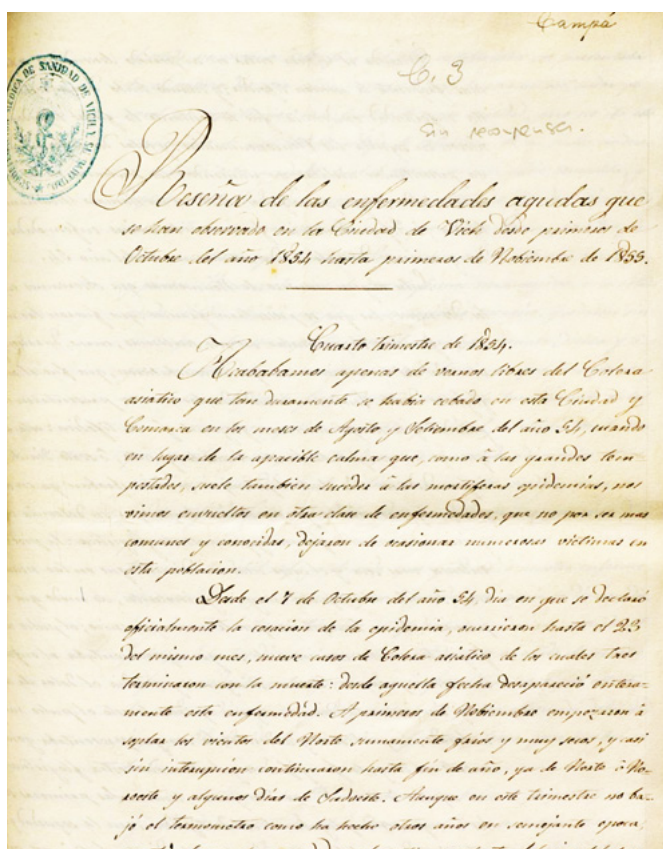 Campá
C. 3
Sin recompensa.
DE SANIDAD DE VICH Y SU
Reseña de las enfermedades agudas que
se han observado en la Ciudad de Vich desde primeros de
Octubre del año 1854 hasta primeros de Nobiembre de 1855.
Cuarto trimestre de 1854.
Acababamos apenas de vernos libres del Colera
asiático que tan duramente se habia cebado en esta Ciudad y
Comarca en los meses de Agosto y Setiembre del año 54, cuando
en lugar de la apacible calma que, como á las grandes tem-
pestades, suele tambien suceder á las mortiferas epidemias, nos
vimos envueltos en otra clase de enfermedades, que no por ser mas
comunes y conocidas, dejaron de ocasionar numerosas victimas en
esta poblacion.
Desde el 7 de Octubre del año 54, dia en que se declaró
oficialmente la cesacion de la epidemia, ocurrieron hasta el 23
del mismo mes, nueve casos de Colera asiatico de los cuales tres
terminaron con la muerte: desde aquella fecha desapareció entera-
mente esta enfermedád. A primeros de Nobiembre empezaron á
soplar los vientos del Norte sumamente frios y muy secos, y casi
sin interupcion continuaron hasta fin de año, ya de Norte ó No-
roeste y algunos dias de Sudoeste. Aunque en este trimestre no ba-
jó el termometro como ha hecho otros años en semejante epoca,